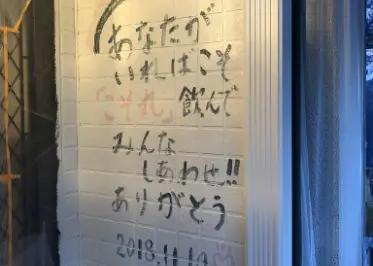 あなたが
いればこそ
「こそれ」飲んで
みんな
しあわせ!!
ありがとう
2018.11.19